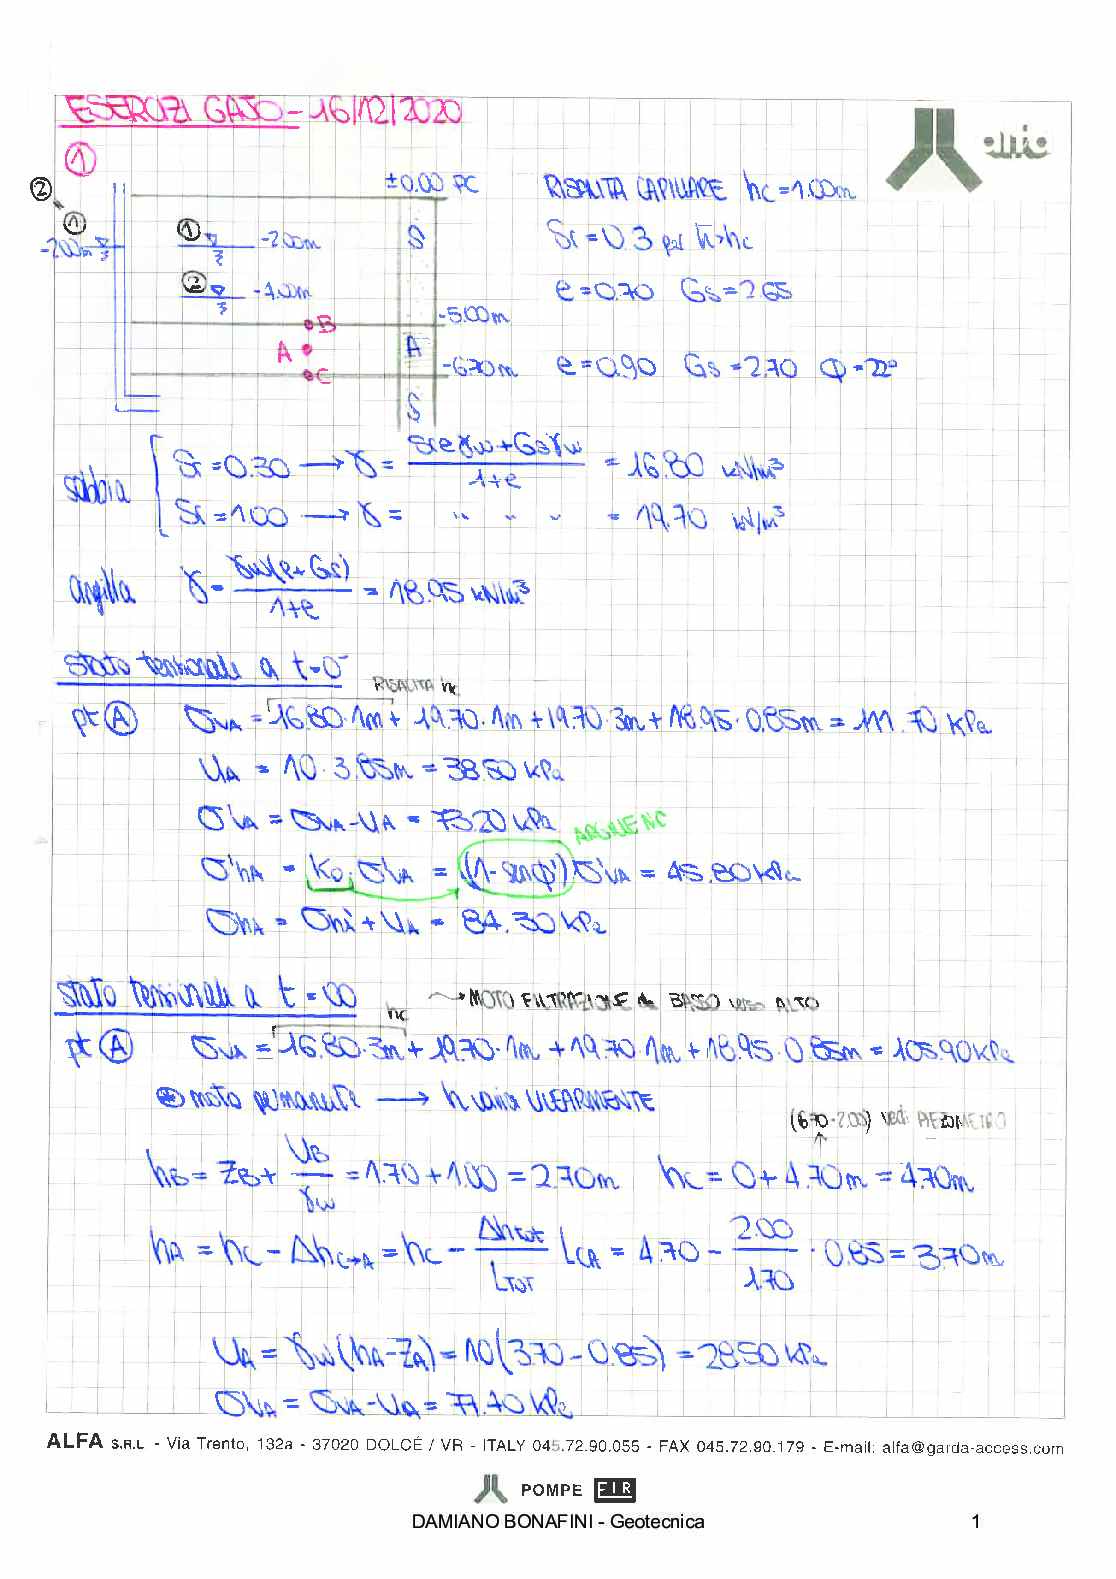 ESERCIZI GASO - 16/12/2020
alfa
①
±0.00 PC
RISALITA CAPILLARE hc = 1.00m
②
①
-2.00m
① -2.00m
S
Sr = 0.3 per h>hc
② -4.00m
e = 0.70 Gs = 2.65
-5.00m
B
A
A
-6.70m e = 0.90 Gs = 2.70 Φ = 22°
C
S
sabbia
Sr = 0.30 → γ = Sr e γw + Gs γw / 1+e = 16.80 kN/m³
Sr = 1.00 → γ = " " " = 19.70 kN/m³
argilla γ = γw(e+Gs) / 1+e = 18.95 kN/m³
stato tensionale a t=0⁻
RISALITA hc
pt Ⓐ σvA = 16.80·1m + 19.70·1m + 19.70·3m + 18.95·0.85m = 111.70 kPa
uA = 10·3.85m = 38.50 kPa
σ'vA = σvA - uA = 73.20 kPa
ARGILLE NC
σ'hA = K0·σ'vA = (1-senφ')σ'vA = 45.80 kPa
σhA = σ'hA + uA = 84.30 kPa
stato tensionale a t=∞ → MOTO FILTRAZIONE da BASSO verso ALTO
hc
pt Ⓐ σvA = 16.80·3m + 19.70·1m + 19.70·1m + 18.95·0.85m = 105.90 kPa
⊛ moto permanente → h varia LINEARMENTE
(6.70-2.00) vedi PIEZOMETRO
hB = zB + uB/γw = 1.70 + 1.00 = 2.70m hC = 0 + 4.70m = 4.70m
hA = hC - ΔhC→A = hC - Δhtot/LTOT LCA = 4.70 - 2.00/1.70 · 0.85 = 3.70m
uA = γw(hA-zA) = 10(3.70-0.85) = 28.50 kPa
σ'vA = σvA - uA = 77.40 kPa
ALFA S.R.L - Via Trento, 132a - 37020 DOLCÉ / VR - ITALY 045.72.90.055 - FAX 045.72.90.179 - E-mail: alfa@garda-access.com
POMPE FIR
DAMIANO BONAFINI - Geotecnica 1